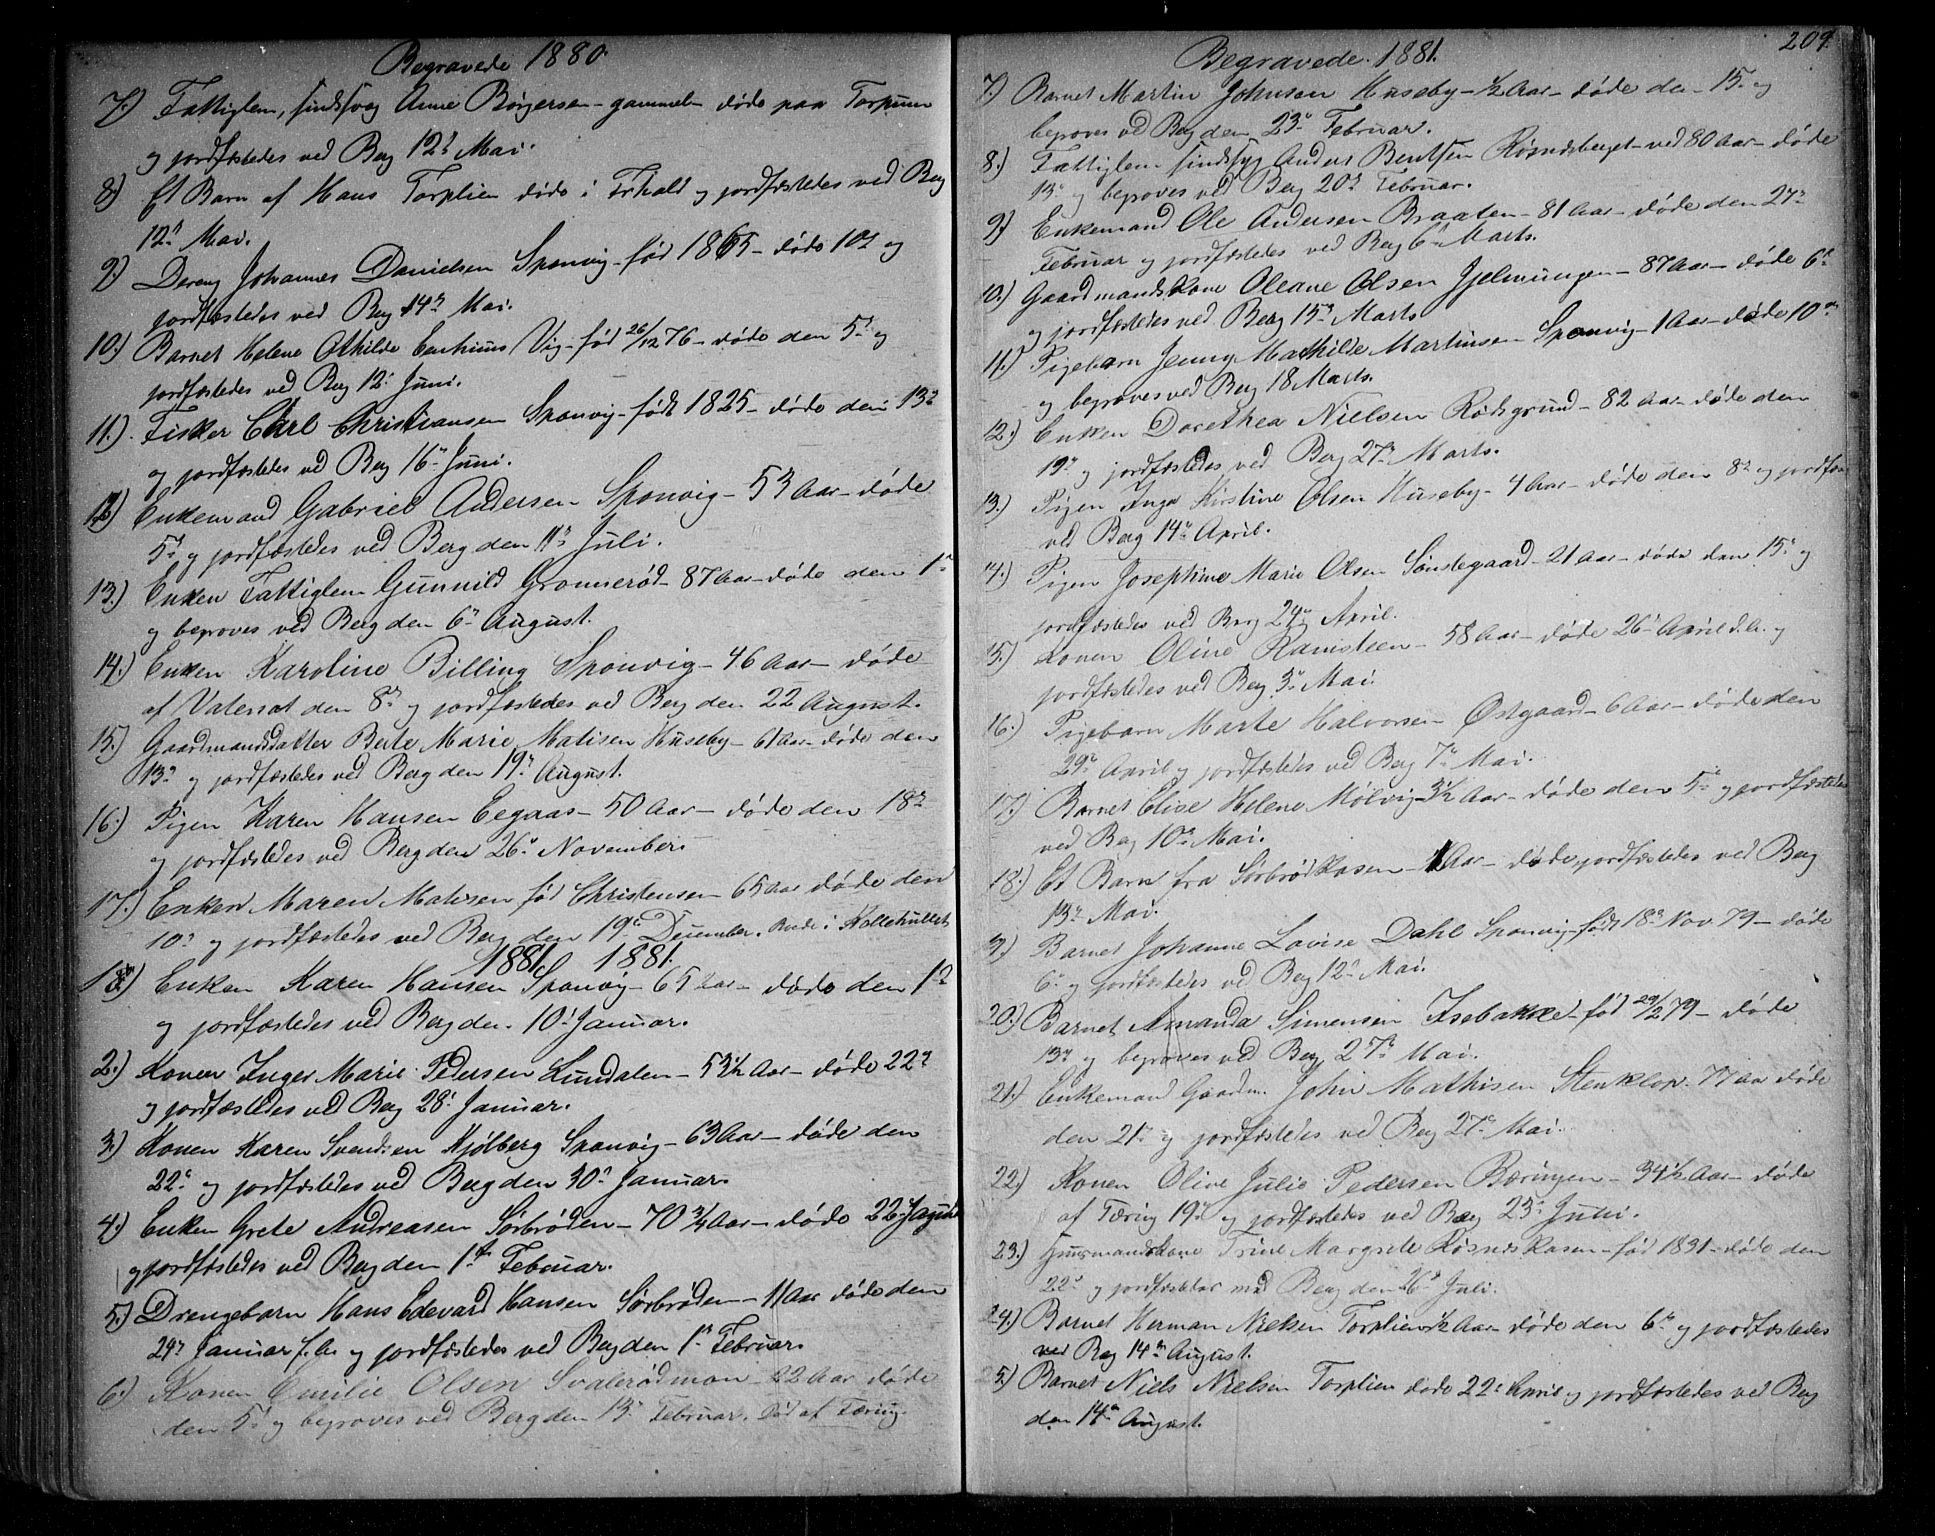 Begravede 1880.
7.) Fattiglem, sindssvag Anne Børgersen - gammel - døde paa Torpum
og jordfæstedes ved Berg 12te Mai.
8.) Et Barn af Hans Torplien døde i Frhald og jordfæstedes ved Berg
12te Mai.
9.) Dreng Johannes Danielsen Sponvig - fød 1865 - døde 10de og
jordfæstedes ved Berg 14de Mai.
10.) Barnet Helene Othilde Vig - fød 26/12 76 - døde den 5te og
jordfæstedes ved Berg 12te Juni.
11.) Fisker Carl Christiansen Sponvig - født 1825 - døde den 13de
og jordfæstedes ved Berg 16de Juni.
12.) Enkemand Gabriel Andersen Sponvig - 53 Aar - døde
5te og jordfæstedes ved Berg den 11te Juli.
13.) Enken Fattiglem Gunnild Grønnerød - 87 Aar - døde den 1te
og begroves ved Berg den 6te August.
14.) Enken Karoline Billing Sponvig - 46 Aar - døde
af den 8de og jordfæstedes ved Berg den 22 August.
15.) Gaardmandsdatter Berte Marie Matisen Huseby - 61 Aar - døde den
13de og jordfæstedes ved Berg den 19de August.
16.) Pigen Karen Hansen Eegaas - 50 Aar - døde den 18de
og jordfæstedes ved Berg den 26de November.
17.) Enken Maren Matisen fød Christensen - 65 Aar døde den
10de og jordfæstedes ved Berg den 19de December. Døde i Kollehullet
1881. 1881.
1.) Enken Karen Hansen Sponvig - 65 Aar - døde den 1te
og jordfæstedes ved Berg den 10de Januar.
2.) Konen Inger Marie Pedersen Lundalen - 53 1/2 Aar - døde 22de
og jordfæstedes ved Berg 28de Januar.
3.) Konen Karen Svendsen Kjølberg Sponvig - 63 Aar - døde den
22de og jordfæstedes ved Berg den 30te Januar.
4.) Enken Grete Andreasen Sørbrøden - 70 3/4 Aar - døde 22de Januar
og jordfæstedes ved Berg den 1ste Februar.
5.) Drengebarn Hans Edevard Hansen Sørbrøden - 11 Aar døde den
29de Januar f. A. og jordfæstedes ved Berg den 1te Februar.
6.) Konen Emilie Olsen Svalerødmon - 22 Aar døde
den 5te og begroves ved Berg den 13de Februar. Død af Tæring.
Begravede. 1881. 209.
7.) Barnet Martin Johnsen Huseby - 1/2 Aar - døde den 15de og
begroves ved Berg den 23de Februar.
8.) Fattiglem sindssyg Anders Bentsen Røsnesberget - ved 80 Aar - døde
13de og begroves ved Berg 20de Februar.
9.) Enkemand Ole Andersen Braaten - 81 Aar - døde den 27de
Februar og jordfæstedes ved Berg 6te Marts.
10.) Gaardmandskone Oleane Olsen Hjelmungen - 87 Aar - døde 6te
og jordfæstedes ved Berg 15de Marts.
11.) Pigebarn Jenny Mathilde Martinsen Sponvig - 1 Aar - døde 10de
og begroves ved Berg 18 Marts.
12.) Enken Dorethea Nielsen Rødsgrund - 82 Aar - døde den
19de og jordfæstedes ved Berg 27de Marts.
13.) Pigen Inga Kirstine Olsen Huseby - 4 Aar - døde den 8de og jordfæst
ved Berg 14de April.
14.) Pigen Josephine Marie Olsen Søndegaard - 21 Aar - døde den 15de og
jordfæstedes ved Berg 24de April.
15.) Konen Oline Ramsteen - 58 Aar - døde 26de April d. A. og
jordfæstedes ved Berg 3de Mai.
16.) Pigebarn Marte Halvorsen Østgaard - 6 Aar - døde den
29de April og jordfæstedes ved Berg 7de Mai.
17.) Barnet Elise Helene Mølvig - 3 1/2 Aar - døde den 5te og jordfæstedes
ved Berg 10de Mai.
18.) Et Barn fra Sørbrødkasen - 1 Aar - døde, jordfæstedes ved Berg
13de Mai.
19.) Barnet Johanne Lovise Dahl Sponvig - født 18de Nov 79 - døde
6te og jordfæstedes ved Berg 12te Mai.
20.) Barnet Amanda Simensen Isebakke - fød 29/2 79 - døde
13de og begroves ved Berg 27de Mai.
21.) Enkemand Gaardm. John Mathisen Stenklop - 77 Aar døde
den 21de og jordfæstedes ved Berg 27de Mai.
22.) Konen Olive Julie Pedersen Bæringen - 34 1/2 Aar - døde
af Tæring 19de og jordfæstedes ved Berg 25de Juni.
23.) Huusmandskone Trine Margrete Røsneskasen - fød 1831 - døde den
22de og jordfæstedes ved Berg den 26de Juli.
24.) Barnet Herman Nielsen Torplien 1/2 Aar - døde den 6te og jordfæstedes
ved Berg 14de August.
25.) Barnet Niels Nielsen Torplien døde 22de April og jordfæstedes ved Berg
den 14de August.